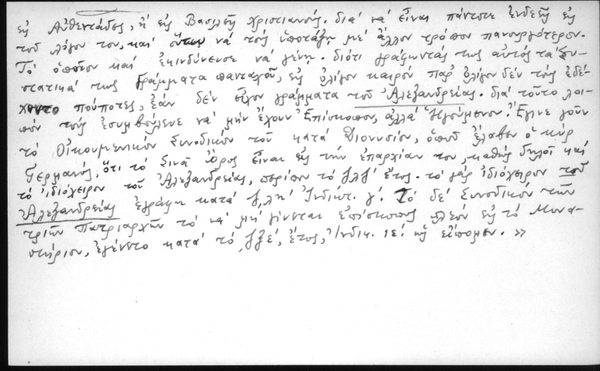 εἰς Αὐθεντάδες, ἢ εἰς Βασιλεῖς χριστιανούς. διὰ νὰ εἶναι πάντοτε ἐνδεεῖς εἰς
τοῦ λόγου του, καὶ οὕτως νὰ τοὺς ὑποτάξῃ μὲ ἄλλον τρόπον πανουργότερον.
Τὸ ὁποῖον καὶ ἐκινδύνευσε νὰ γένῃ. διότι γράφωντάς τως αὐτὸς τὰ συ-
στατικὰ τως γράμματα πανταχοῦ, εἰς ὀλίγον καιρὸν παρ' ὀλίγον δὲν τοὺς ἐδέ-
χοντο πούποτες, ἐὰν δὲν εἶχον γράμματα τοῦ Ἀλεξανδρείας. διὰ τοῦτο λοι-
πὸν τοὺς ἐσυμβούλευε νὰ μὴν ἔχουν Ἐπίσκοπον, ἀλλὰ Ἡγούμενον. Ἔγινε γοῦν
τὸ Οἰκουμενικὸν Συνοδικὸν τοῦ κατὰ Διονυσίου, ὁποῦ ἔλαβεν ὁ κὺρ
Γερμανός, ὅτι τὸ Σινὰ Ὄρος εἶναι εἰς τὴν ἐπαρχίαν του, καθὼς δηλοῖ καὶ
τὸ ἰδιόχειρον τοῦ Ἀλεξανδρείας, περίσον τὸ ἔτος. τὸ γὰρ ἰδιόχειρον τοῦ
Ἀλεξανδρείας ἐγράφη κατὰ Ἰνδικτ. γ΄. Τὸ δὲ Συνοδικὸν τῶν
τριῶν Πατριαρχῶν τὸ νὰ μὴ γίνεται ἐπίσκοπος πλέον εἰς τὸ Μονα-
στήριον, ἐγένετο κατὰ τὸ ἔτος, Ἰνδικ. ιε΄ ὡς εἴπομεν. »